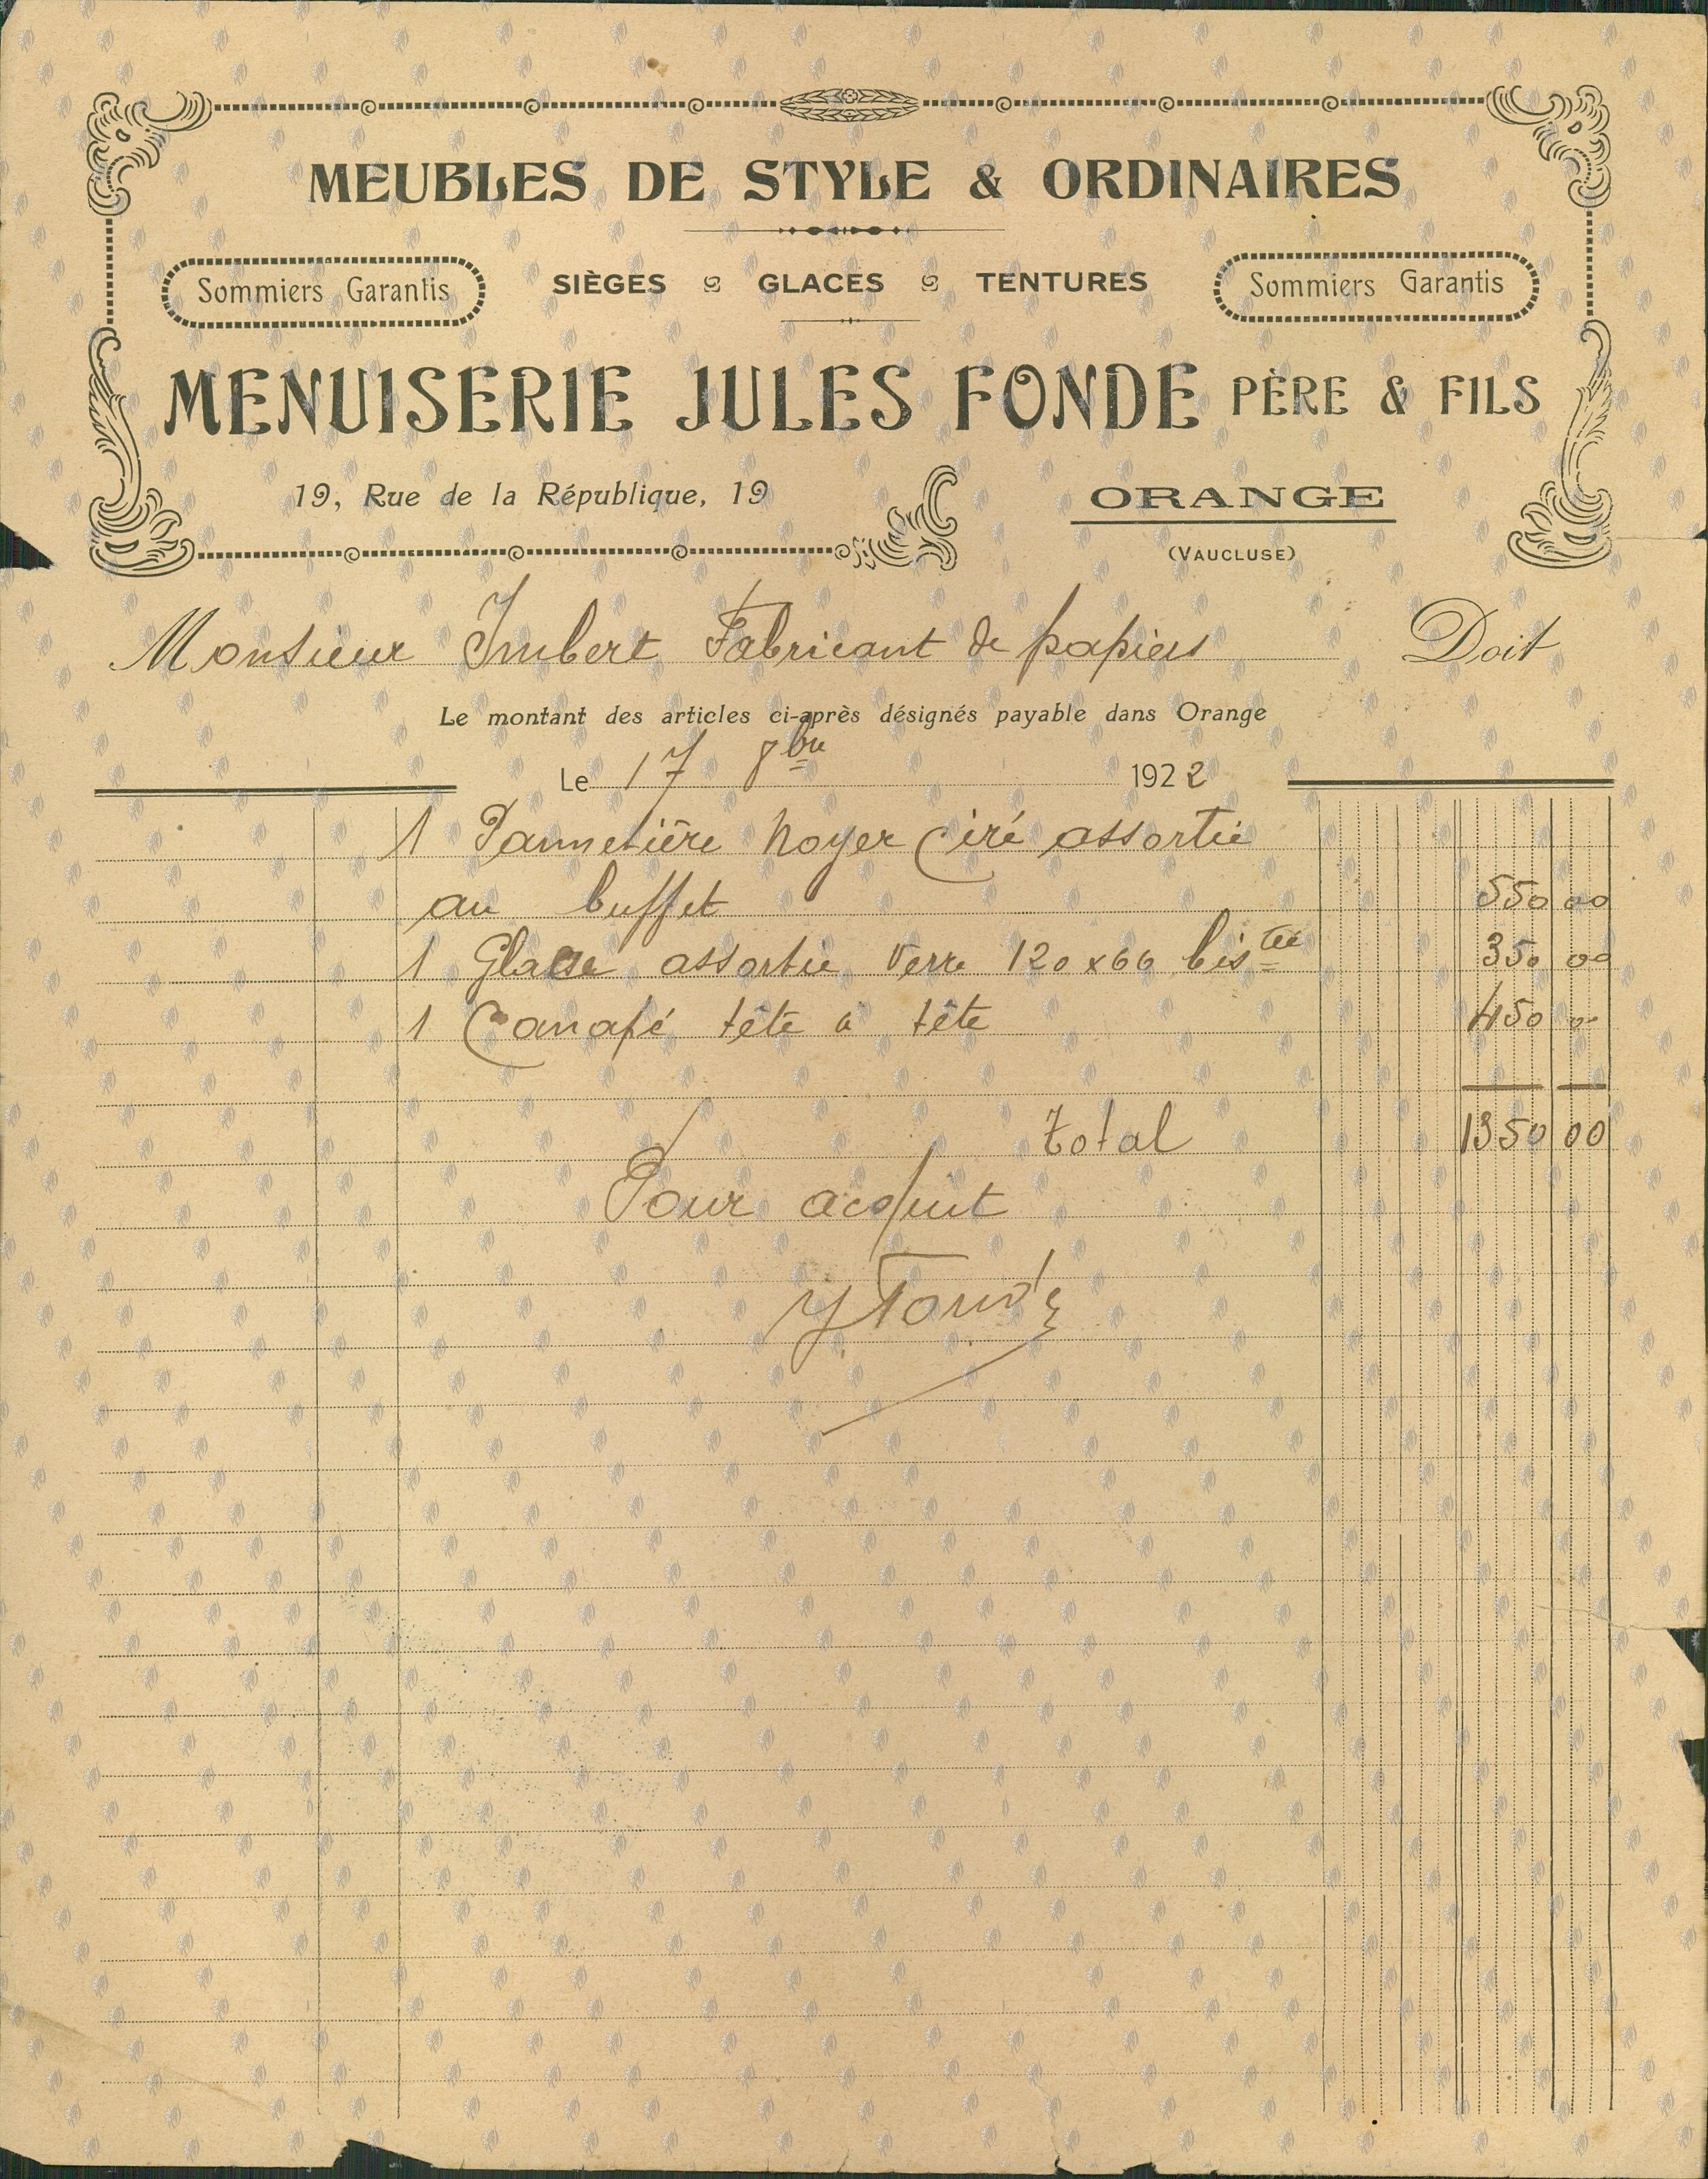 MEUBLES DE STYLE & ORDINAIRES
Sommiers Garantis SIÈGES GLACES TENTURES Sommiers Garantis
MENUISERIE JULES FONDE PÈRE & FILS
19, Rue de la République, 19 ORANGE
(VAUCLUSE)
Monsieur Imbert Fabricant de papiers Doit
Le montant des articles ci-après désignés payable dans Orange
Le 17 8bre 1922
1 Pannetière Noyer Ciré assortie
au buffet 550 00
1 Glace assortie Verre 120 x 66 bistée 350 00
1 Canapé tête à tête 450 00
total 1350 00
Pour acquit
J Fonde